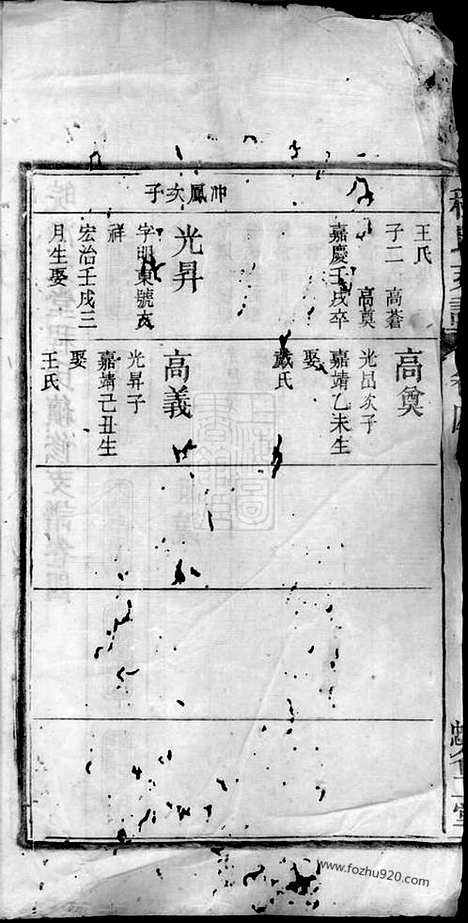 王氏
子二 高蒼
高奠
嘉慶壬戌卒
沖鳳次子
光昇
字明東號友
祥
宏治壬戌三
月生娶
高奠
光昌次子
嘉靖乙未生
娶
戴氏
高義
光昇子
嘉靖己丑生
娶
王氏
www.fozhu920.com